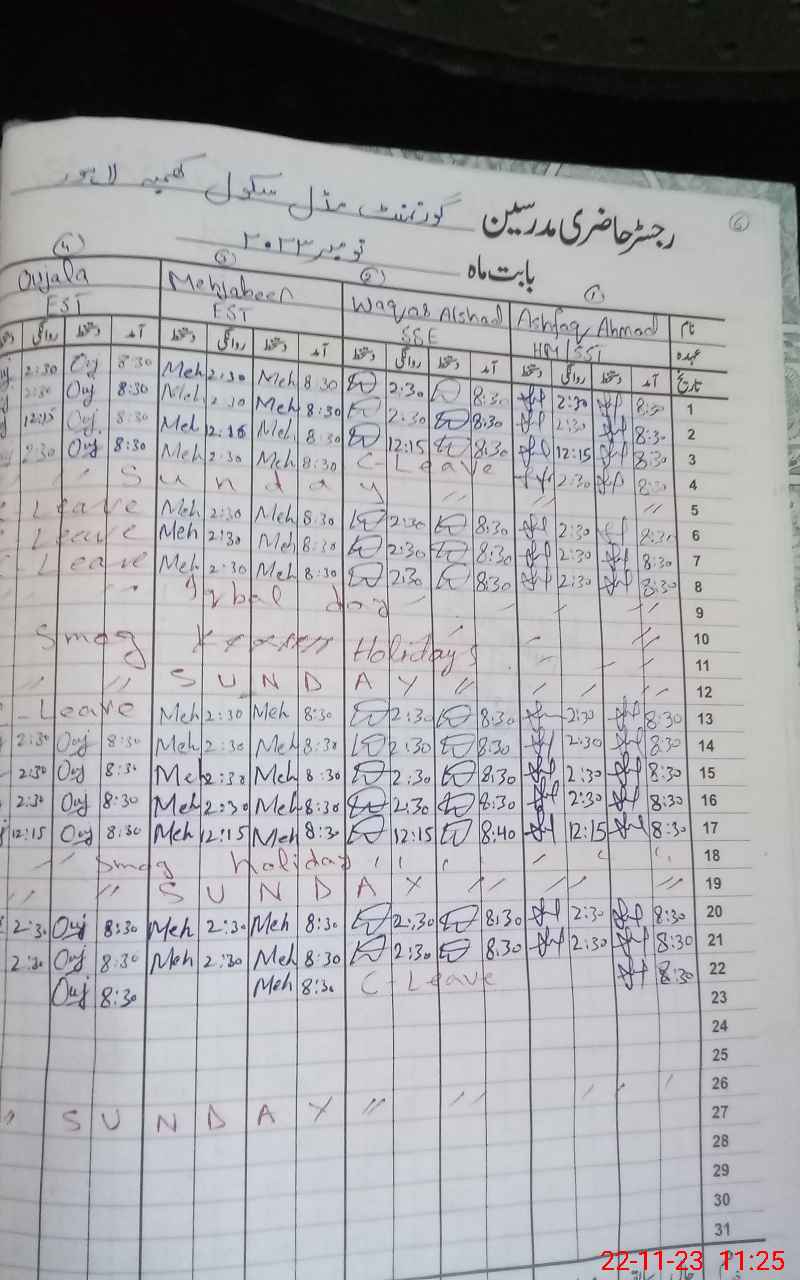 گورنمنٹ مڈل سکول کھمبہ لاہور
رجسٹر حاضری مدرسین
6
نومبر ۲۰۲۳
بابت ماہ
4 3 2 1
Oujala Mehjabeen Waqas Alshad Ashfaq Ahmad نام
EST EST SSE HM/SST عہدہ
روانگی دستخط آمد دستخط روانگی دستخط آمد دستخط روانگی دستخط آمد دستخط روانگی دستخط آمد تاریخ
2:30 Ouj 8:30 Meh 2:30 Meh 8:30 2:30 8:30 2:30 8:30 1
2:30 Ouj 8:30 Meh 2:30 Meh 8:30 2:30 8:30 2:30 8:30 2
12:15 Ouj 8:30 Meh 12:15 Meh 8:30 12:15 8:30 12:15 8:30 3
2:30 Ouj 8:30 Meh 2:30 Meh 8:30 C-Leave 2:30 8:30 4
" " Sunday " " " 5
Leave Meh 2:30 Meh 8:30 2:30 8:30 2:30 8:30 6
Leave Meh 2:30 Meh 8:30 2:30 8:30 2:30 8:30 7
Leave Meh 2:30 Meh 8:30 2:30 8:30 2:30 8:30 8
Iqbal day 9
10
Smog Holidays 11
" " SUNDAY " 12
Leave Meh 2:30 Meh 8:30 2:30 8:30 2:30 8:30 13
2:30 Ouj 8:30 Meh 2:30 Meh 8:30 2:30 8:30 2:30 8:30 14
2:30 Ouj 8:30 Meh 2:30 Meh 8:30 2:30 8:30 2:30 8:30 15
2:30 Ouj 8:30 Meh 2:30 Meh 8:30 2:30 8:30 2:30 8:30 16
12:15 Ouj 8:30 Meh 12:15 Meh 8:30 12:15 8:40 12:15 8:30 17
Smog Holiday 18
" " SUNDAY " " " 19
2:30 Ouj 8:30 Meh 2:30 Meh 8:30 2:30 8:30 2:30 8:30 20
2:30 Ouj 8:30 Meh 2:30 Meh 8:30 2:30 8:30 2:30 8:30 21
Ouj 8:30 Meh 8:30 C-Leave 8:30 22
23
24
25
26
" SUNDAY " " 27
28
29
30
31
22-11-23 11:25